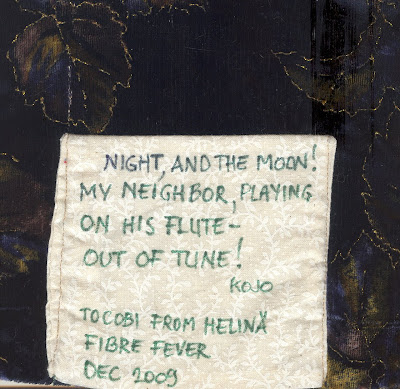 NIGHT, AND THE MOON!
MY NEIGHBOR, PLAYING
ON HIS FLUTE–
OUT OF TUNE!
KOJO
TO COBI FROM HELINÄ
FIBRE FEVER
DEC 2009